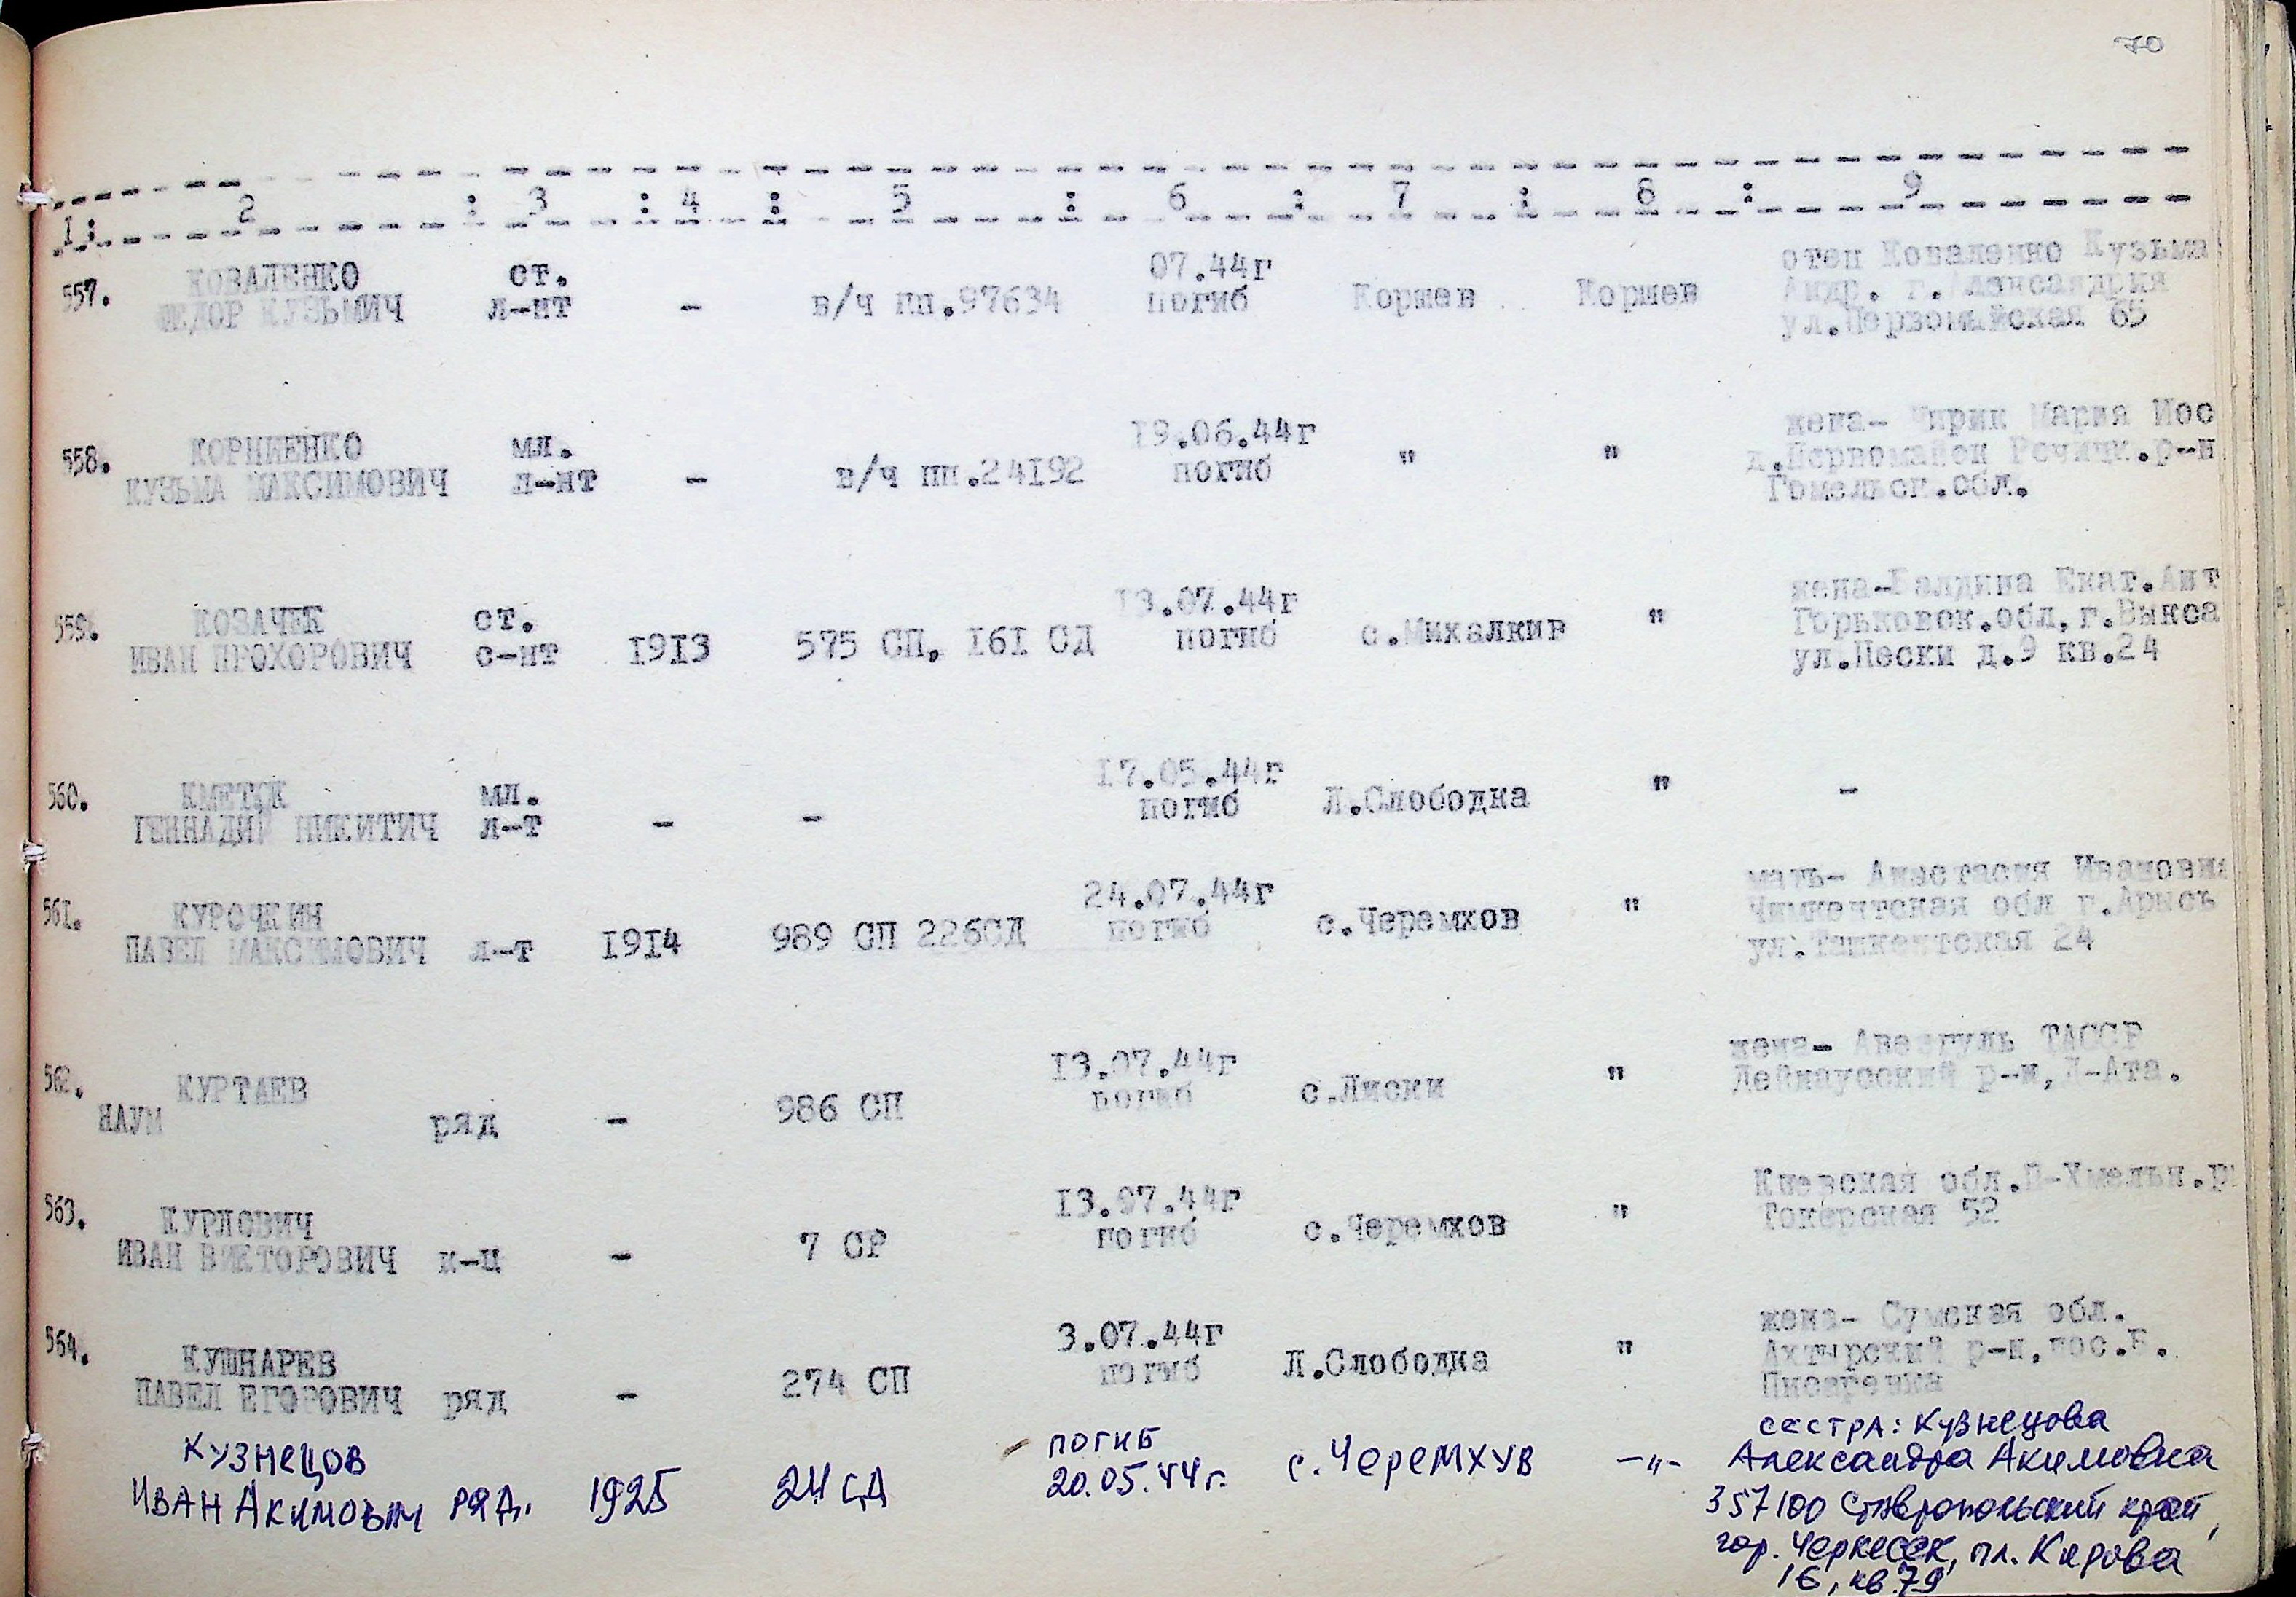 70
1: 2 : 3 : 4 : 5 : 6 : 7 : 8 : 9
557. КОВАЛЕНКО ст. 07.44г отец Коваленко Кузьма
ФЕДОР КУЗЬМИЧ л-нт - в/ч пп.97634 погиб Коршев Коршев Андр. г.Александрия
ул.Первомайская 65
558. КОРНИЕНКО мл. 19.06.44г жена- Чирик Мария Иос
КУЗЬМА МАКСИМОВИЧ л-нт - в/ч пп.24I92 погиб " " д.Первомайск Речицк.р-н
Гомельск.обл.
559. КОЗАЧЕК ст. I3.07.44г жена-Балдина Екат.Ант
ИВАН ПРОХОРОВИЧ с-нт I9I3 575 СП, I6I СД погиб с.Михалкив " Горьковск.обл,г.Выкса
ул.Пески д.9 кв.24
560. КМЕТЮК мл. I7.05.44г
ГЕННАДИЙ НИКИТИЧ л-т - - погиб Л.Слободка " -
561. КУРОЧКИН 24.07.44г мать- Анастасия Ивановна
ПАВЕЛ МАКСИМОВИЧ л-т I9I4 989 СП 226СД погиб с.Черемхов " Чимкентская обл г.Арысь
ул.Ташкентская 24
562. КУРТАЕВ I3.07.44г жена- ТАССР
НАУМ ряд - 986 СП погиб с.Лиски " р-н,
563. КУРЛОВИЧ I3.07.44г Киевская обл.П-Хмельн.р
ИВАН ВИКТОРОВИЧ к-ц - 7 СР погиб с.Черемхов " Токерская 52
564. КУШНАРЕВ 3.07.44г жена- Сумская обл.
ПАВЕЛ ЕГОРОВИЧ ряд - 274 СП погиб Л.Слободка " Ахтырский р-н,пос.Б.
Писаревка
КУЗНЕЦОВ погиб сестра: Кузнецова
ИВАН АКИМОВИЧ РЯД. 1925 24 СД 20.05.44г. с.ЧЕРЕМХУВ -"- Александра Акимовна
357100 Ставропольский край,
гор. Черкесск, пл. Кирова
16, кв.79